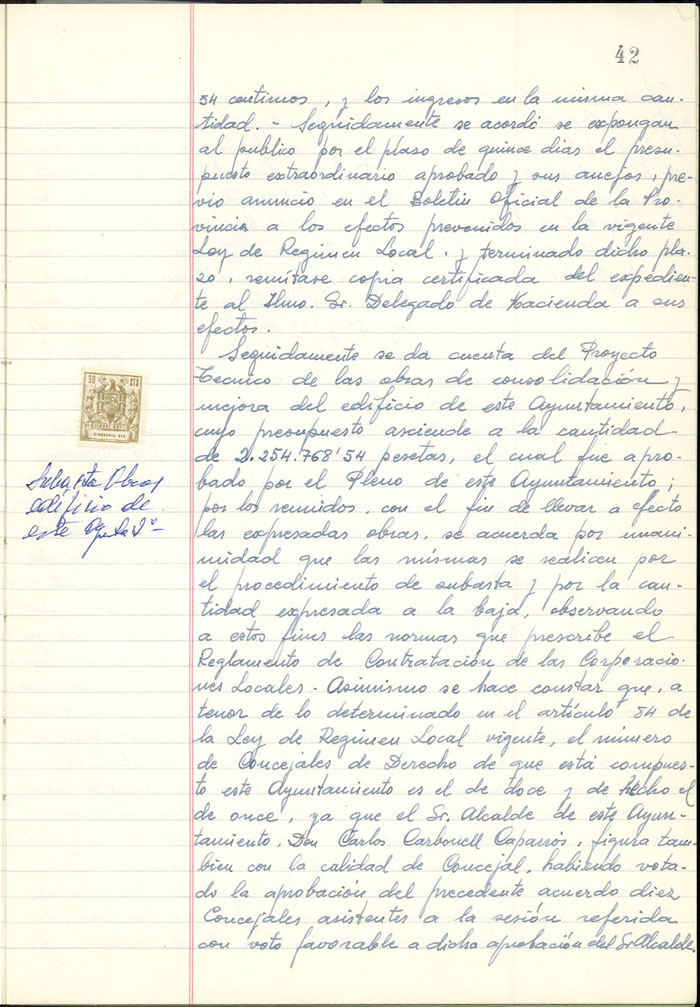 42
54 centimos, y los ingresos en la misma can-
tidad. - Seguidamente se acordó se expongan
al publico por el plaso de quince dias el presu-
puesto extraordinario aprobado y sus anejos, pre-
vio anuncio en el Boletin Oficial de la Pro-
vincia a los efectos prevenidos en la vigente
Ley de Regimen Local. y terminado dicho pla-
zo, remítase copia certificada del expedien-
te al Ilmo. Sr. Delegado de Hacienda a sus
efectos.
Seguidamente se da cuenta del Proyecto
Tecnico de las obras de consolidación y
mejora del edificio de este Ayuntamiento,
cuyo presupuesto asciende a la cantidad
de 2.254.768'54 pesetas, el cual fue apro-
bado por el Pleno de este Ayuntamiento;
por los reunidos, con el fin de llevar a efecto
las expresadas obras, se acuerda por unani-
midad que las mismas se realicen por
el procedimiento de subasta y por la can-
tidad expresada a la baja, observando
a estos fines las normas que prescribe el
Reglamento de Contratación de las Corporacio-
nes Locales. Asimismo se hace constar que, a
tenor de lo determinado en el artículo 84 de
la Ley de Regimen Local vigente, el número
de Concejales de Derecho de que está compues-
to este Ayuntamiento es el de doce y de hecho el
de once, ya que el Sr. Alcalde de este Ayun-
tamiento, Don Carlos Carbonell Caparrós, figura tam-
bien con la calidad de Concejal, habiendo vota-
do la aprobación del precedente acuerdo diez
Concejales asistentes a la sesión referida
con voto favorable a dicha aprobación del Sr Alcalde.
50 CTS
Subasta Obras
edificio de
este